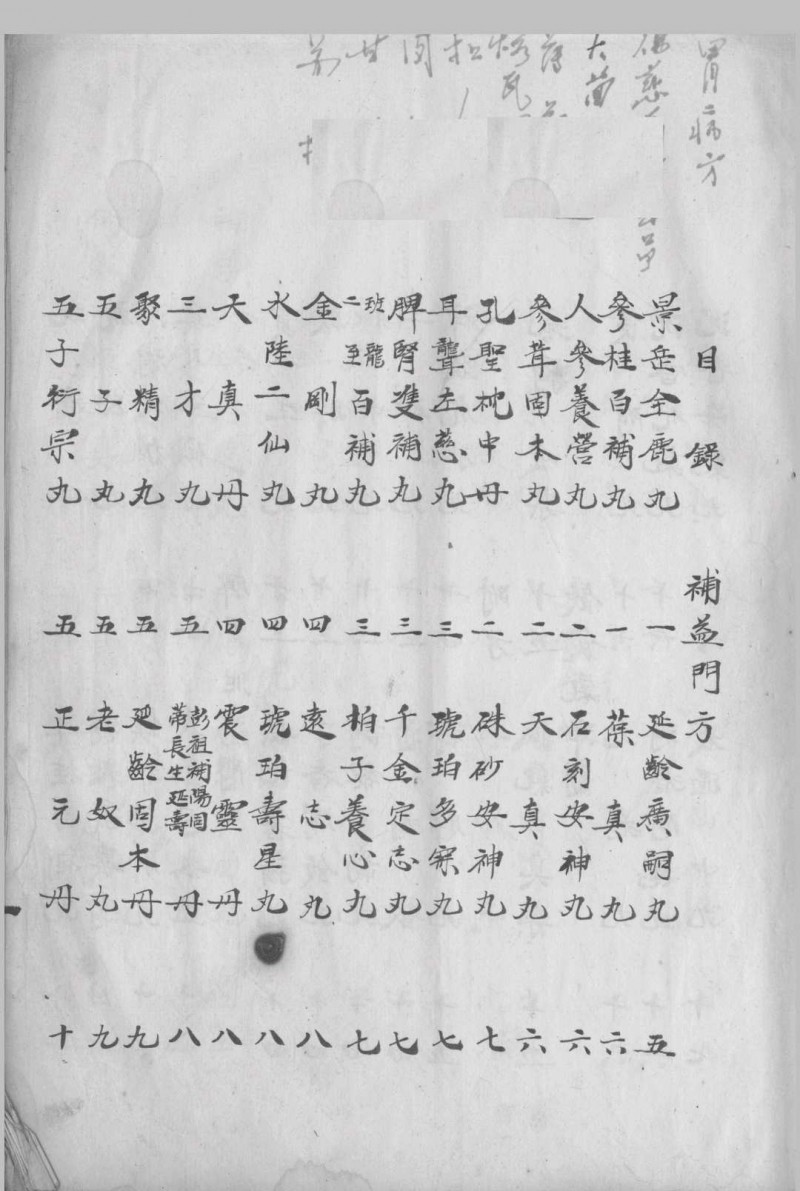 胃病方
大黄
目錄 補益門方
景岳全鹿丸 一 延齡廣嗣丸 五
參桂百補丸 一 葆真丸 六
人參養營丸 二 石刻安神丸 六
參茸固本丸 二 天真丸 六
孔聖枕中丹 二 硃砂安神丸 七
耳聾左慈丸 三 琥珀多寐丸 七
脾腎雙補丸 三 千金定志丸 七
二至班龍百補丸 三 柏子養心丸 七
金剛丸 四 遠志丸 八
水陸二仙丸 四 琥珀壽星丸 八
天真丹 四 震靈丹 八
三才丸 五 彭祖補陽固蒂長生延壽丹 八
聚精丸 五 延齡固本丹 九
五子丸 五 老奴丸 九
五子衍宗丸 五 正元丹 十